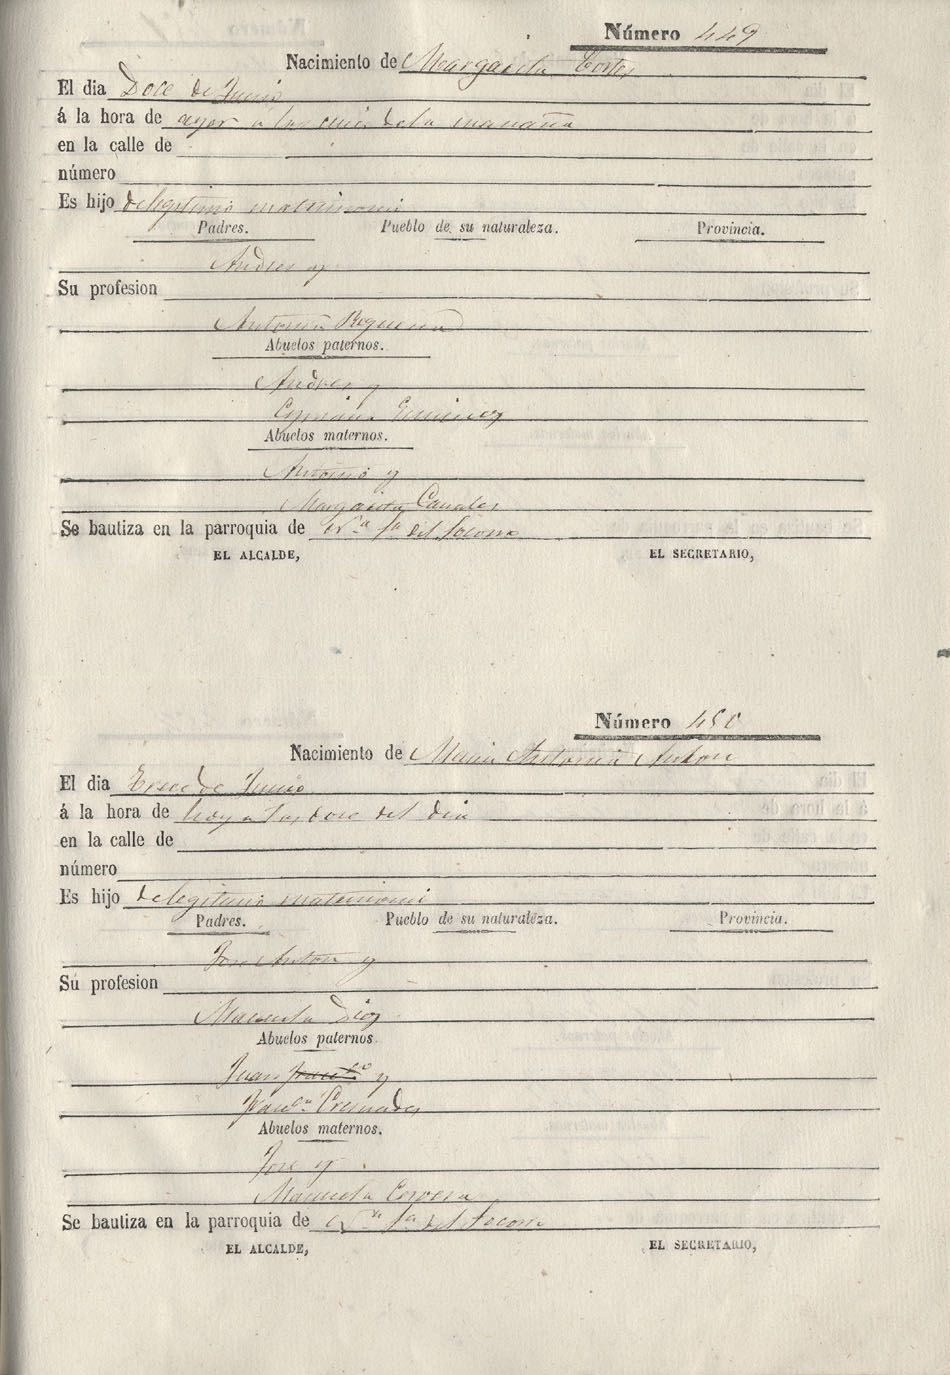 Número 449
Nacimiento de Margarita Cortes
El dia Doce de Junio
á la hora de ayer a las cinco de la mañana
en la calle de
número
Es hijo de legitimo matrimonio
Padres. Pueblo de su naturaleza. Provincia.
Andres y
Su profesion
Antonia Requena
Abuelos paternos.
Andres y
Cipriana Gimenez
Abuelos maternos.
Antonio y
Margarita Canales
Se bautiza en la parroquia de Nª Sª del Socorro
EL ALCALDE, EL SECRETARIO,
Número 450
Nacimiento de Maria Antonia Anton
El dia Trece de Junio
á la hora de hoy a las doce del dia
en la calle de
número
Es hijo de legitimo matrimonio
Padres. Pueblo de su naturaleza. Provincia.
Jose Anton y
Su profesion
Manuela Diez
Abuelos paternos.
Juan y
Franca Cremades
Abuelos maternos.
Jose y
Manuela Cervera
Se bautiza en la parroquia de Nª Sª del Socorro
EL ALCALDE, EL SECRETARIO,